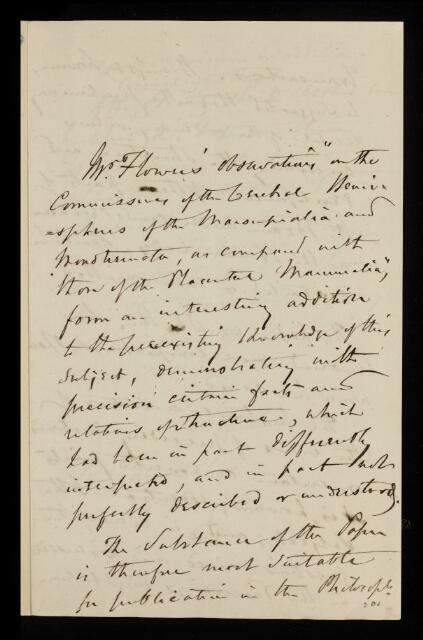 Mr. Flower's observations "on the
Commissures of the Cerebral Hemi-
=spheres of the Marsupialia and
Monotremata, as compared with
those of the Placental Mammalia",
form an interesting addition
to the preexisting knowledge of this
subject, demonstrating with
precision certain facts and
relations of structure, which
had been in part differently
interpreted, and in part not
perfectly described or understood.
The Substance of the Paper
is therefore most suitable
for publication in the Philosophl.